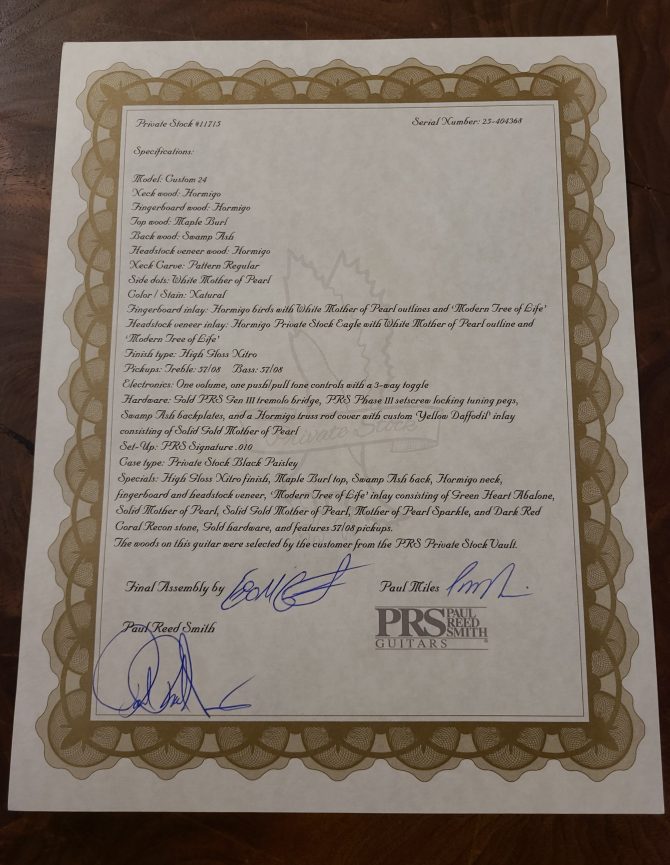 Private Stock #11715
Serial Number: 25-404368
Specifications:
Model: Custom 24
Neck wood: Hormigo
Fingerboard wood: Hormigo
Top wood: Maple Burl
Back wood: Swamp Ash
Headstock veneer wood: Hormigo
Neck Carve: Pattern Regular
Side dots: White Mother of Pearl
Color / Stain: Natural
Fingerboard inlay: Hormigo birds with White Mother of Pearl outlines and 'Modern Tree of Life'
Headstock veneer inlay: Hormigo Private Stock Eagle with White Mother of Pearl outline and
'Modern Tree of Life'
Finish type: High Gloss Nitro
Pickups: Treble: 57/08 Bass: 57/08
Electronics: One volume, one push/pull tone controls with a 3-way toggle
Hardware: Gold PRS Gen III tremolo bridge, PRS Phase III setscrew locking tuning pegs,
Swamp Ash backplates, and a Hormigo truss rod cover with custom 'Yellow Daffodil' inlay
consisting of Solid Gold Mother of Pearl
Set-Up: PRS Signature .010
Case type: Private Stock Black Paisley
Specials: High Gloss Nitro finish, Maple Burl top, Swamp Ash back, Hormigo neck,
fingerboard and headstock veneer, 'Modern Tree of Life' inlay consisting of Green Heart Abalone,
Solid Mother of Pearl, Solid Gold Mother of Pearl, Mother of Pearl Sparkle, and Dark Red
Coral Recon stone, Gold hardware, and features 57/08 pickups.
The woods on this guitar were selected by the customer from the PRS Private Stock Vault.
Final Assembly by
Paul Miles
Paul Reed Smith
PRS PAUL REED SMITH
GUITARS